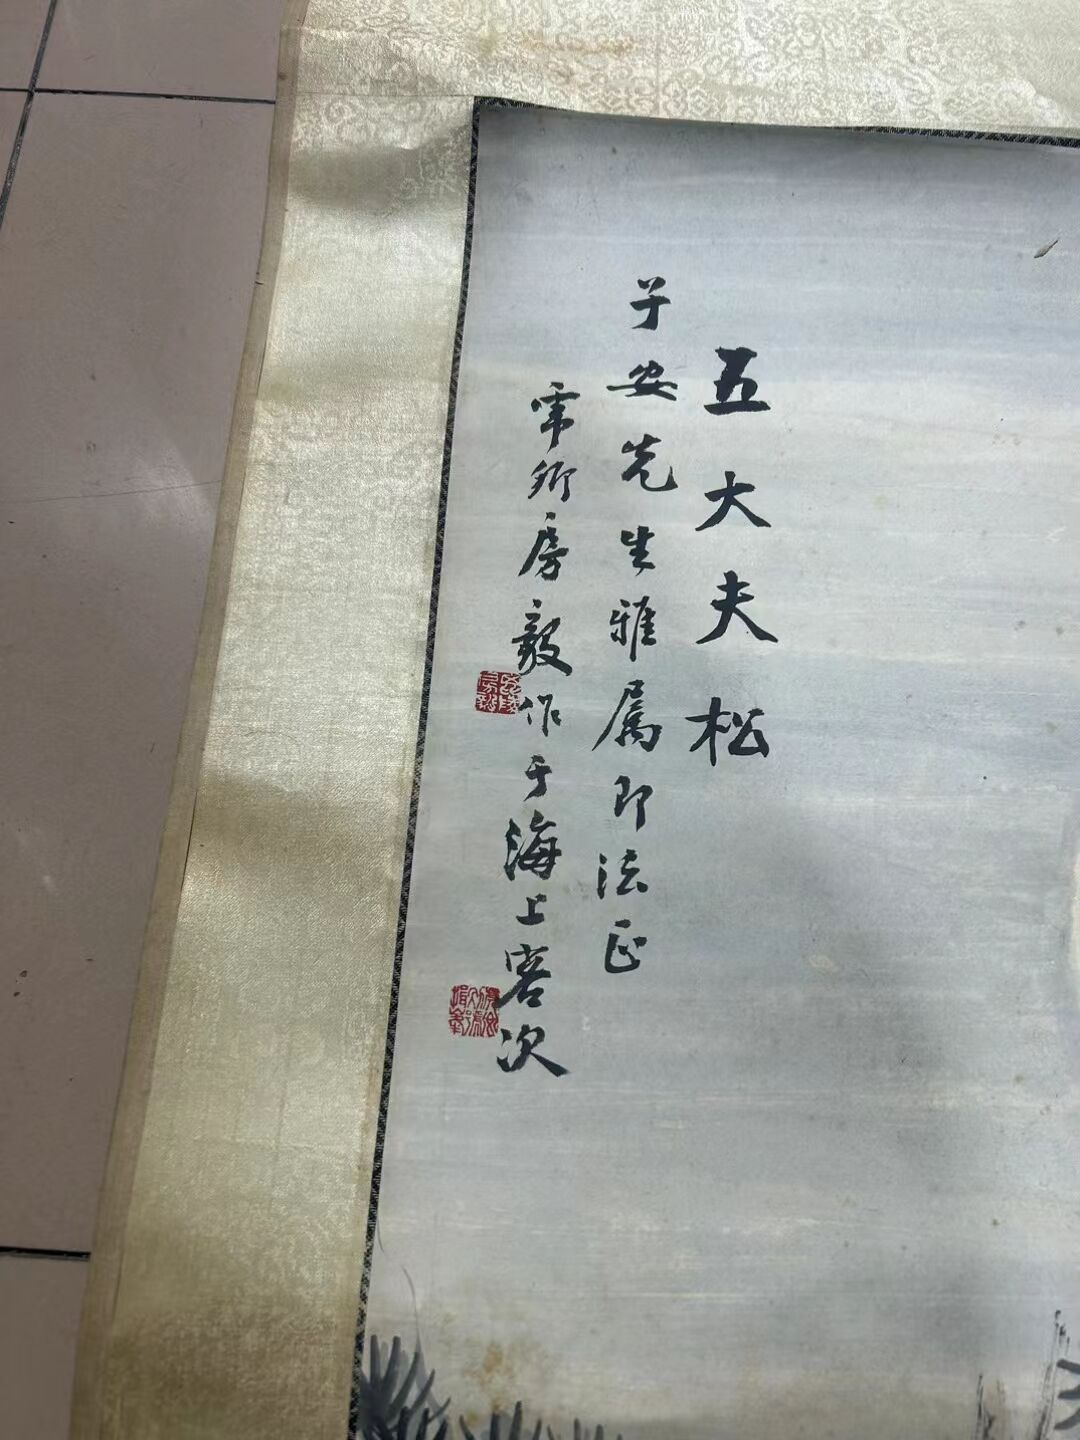 五大夫松
子安先生雅属即法正
虎卿房毅作于海上客次